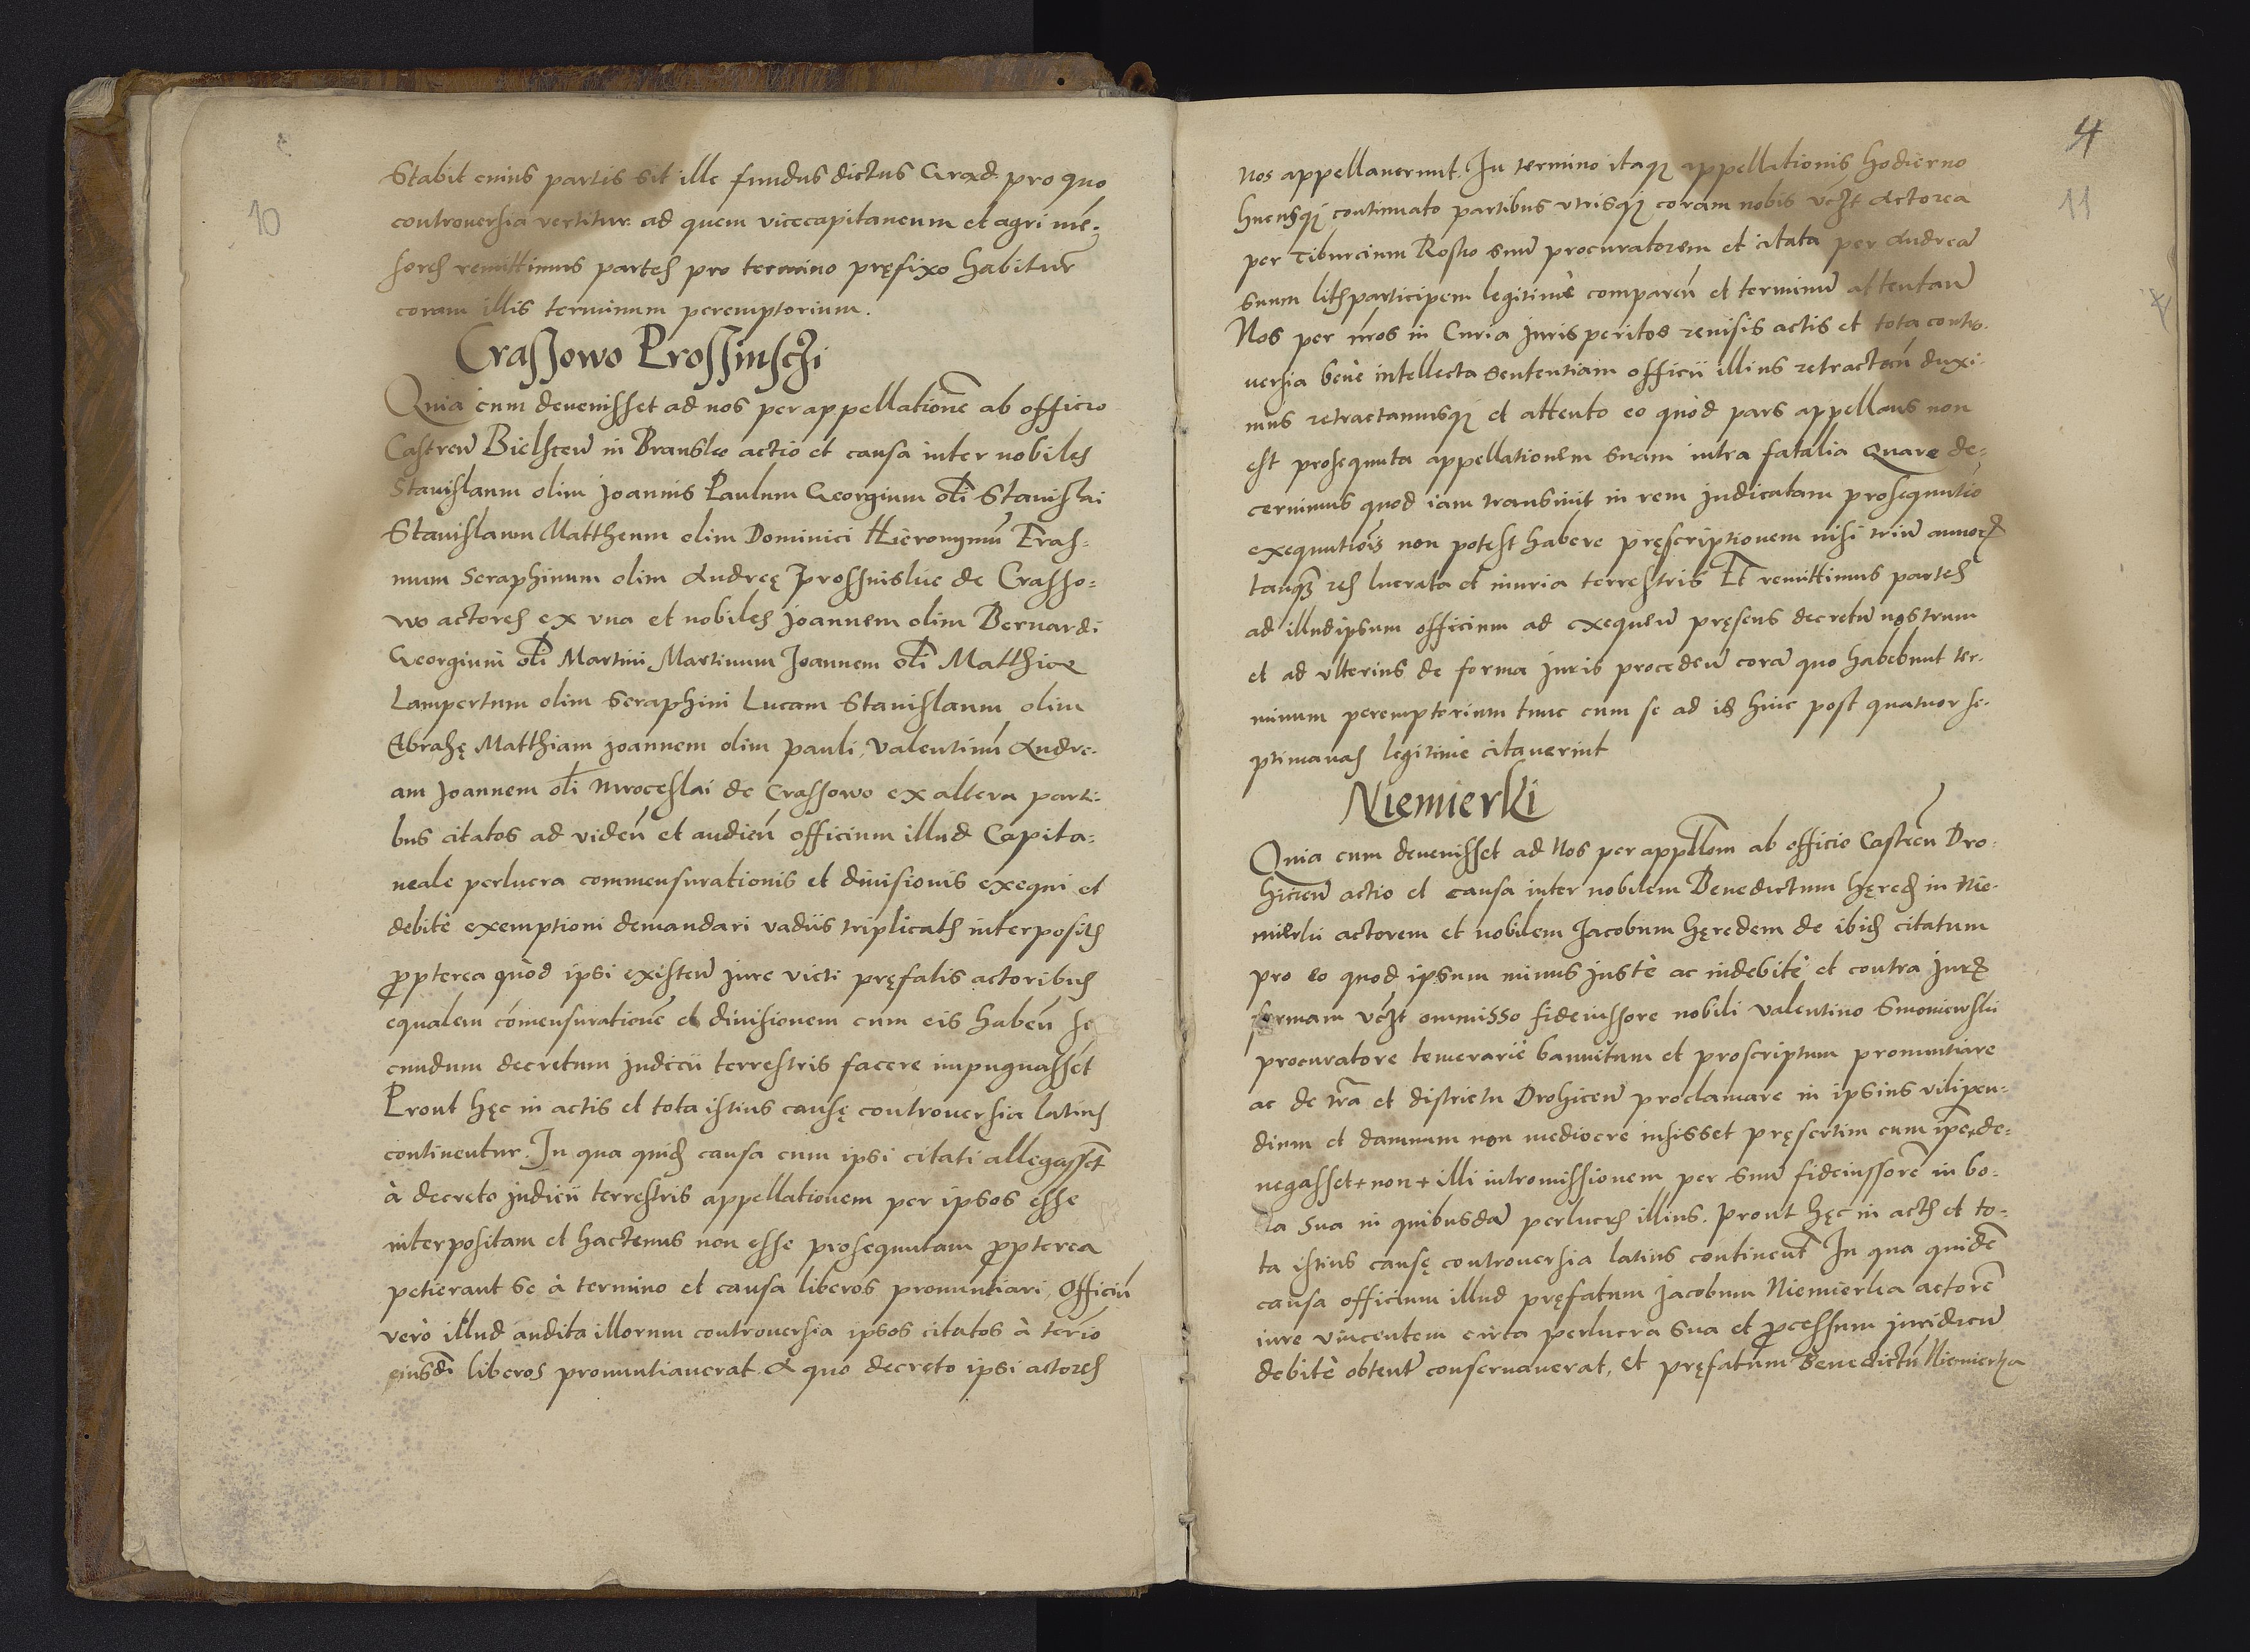 10
Stabit cuius partis sit ille fundus dictus Grąd. pro quo
controuersia vertitur. ad quem vicecapitaneum et agri mē-
sores remittimus partes pro termino pręfixo habitur
coram illis terminum peremptorium.
Crassowo Prossinsczi
Quia cum deuenisset ad nos per appellationē ab officio
Castreñ Bielsceñ in Bransko actio et causa inter nobiles
Stanislaum olim Joannis Paulum Georgium oli Stanislai
Stanislaum Mattheum olim Dominici Hieronymū Eras-
mum Seraphinum olim Andreę Prossnislie de Crasso-
wo actores ex vna et nobiles Joannem olim Bernardi
Georgium oli Martini Martinum Joannem oli Matthiae
Lampertum olim Seraphini Lucam Stanislaum olim
Abrahę Matthiam Joannem olim Pauli, Valentinū Andre-
am Joannem oli Mroceslai de Crassowo ex altera parti-
bus citatos ad videñ et audieñ officium illud Capita-
neale perlucra commensurationis et diuisionis exequi et
debitè exemptioni demandari vadiis triplicatis interpositis
propterea quòd ipsi existeñ jure victi pręfatis actoribus
equalem comensurationē et diuisionem cum eis habeñ se
cundum decretum judicii terrestris facere impugnassēt
Prout hęc in actis et tota istius causę controuersia latius
continentur. In qua quid causa cum ipsi citati allegassēt
à decreto judicii terrestris appellationem per ipsos esse
interpositam et hactenus non esse prosequutam propterea
petierant se à termino et causa liberos pronuntiari, Officiū
verò illud audita illorum controuersia ipsos citatos à terīo
eiusdī liberos pronuntiauerat. A quo decreto ipsi actores
4
11
nos appellauerunt. In termino itaq appellationis hodierno
hucusq continuato partibus vtrisq coram nobis vczt Actorea
per Tiburcium Rosko suū procuratorem et citata per Andreā
suum litisparticipem legitimè compareñ et terminū attentañ
Nos per nr̄os in Curia Juris peritos reuisis actis et tota contro-
uersia benè intellecta sententiam officii illius retractañ duxi-
mus retractamusq et attento eo quòd pars appellans non
est prosequuta appellationem suam intra fatalia Quare de-
cernimus quod iam transiuit in rem judicatam prosequutio
exequutiois non potest habere pręscriptionem nisi triū annor
tanq res lucrata et in iuria terrestris Et remittimus partes
ad illudipsum officium ad exequeñ pręsens decretū nostrum
et ad vlterius de forma juris procedeñ corā quo habebunt ter-
minum peremptorium tunc cum se ad id hinc post quatuor se-
ptimanas legitimè citauerint
Niemierki
Quia cum deuenisset ad Nos per appllom ab officio Castreñ Dro-
hiceñ actio et causa inter nobilem Benedictum hęred in Nie-
mierki actorem et nobilem Jacobum hęredem de ibid citatum
pro eo quod ipsum minus justè ac indebitè et contra Jur
formam vczt ommisso fideiussore nobili Valentino Smoniewski
procuratore temerariè bannitum et proscriptum pronuntiare
ac de tr̄a et districtu Drohiceñ proclamare in ipsius vilipen-
dium et damnum non mediocre iusisset pręsertim cum ipse de-
negasset + non + illi intromissionem per suū fideiussorē in bo-
na sua in quibusdā perlucris illius. Prout hęc in actis et to-
ta istius causę controuersia latius continent In qua quidē
causa officium illud pręfatum Jacobum Niemierka actorē
iure vincentem circa perlucra sua et processum juridicū
debitè obtent conseruauerat, et pręfatum Benedictū Niemierka